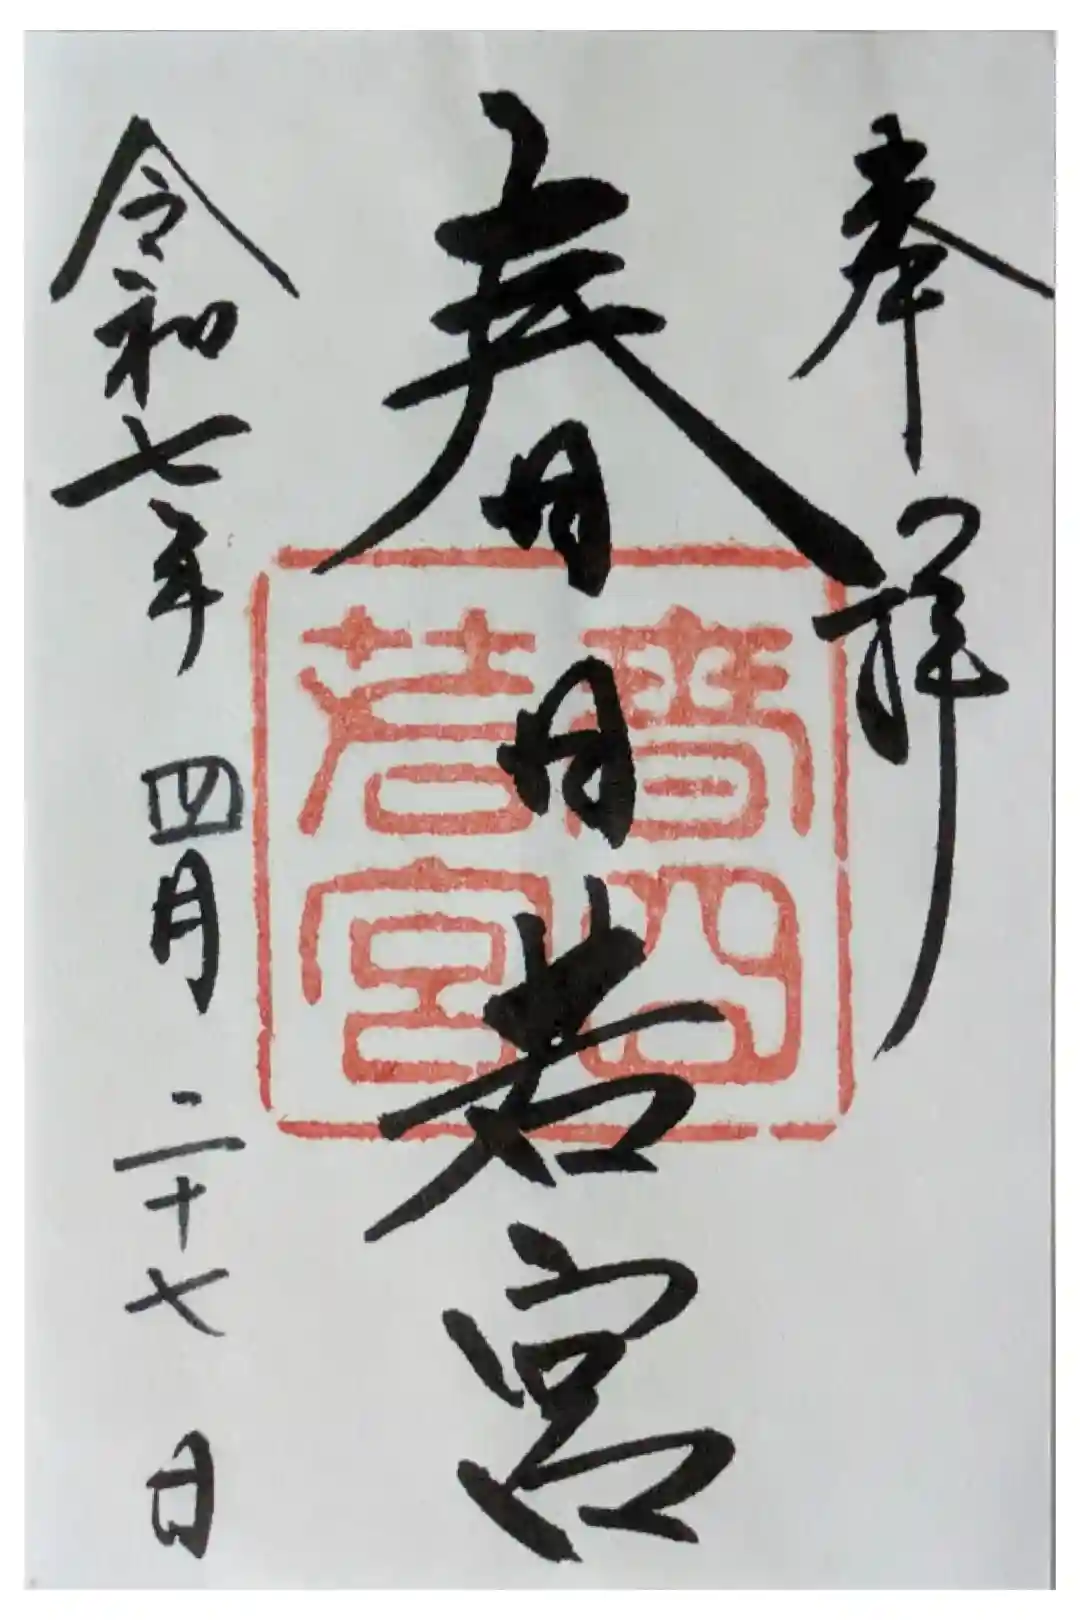 奉拝
春日若宮
令和七年四月二十七日
若宮